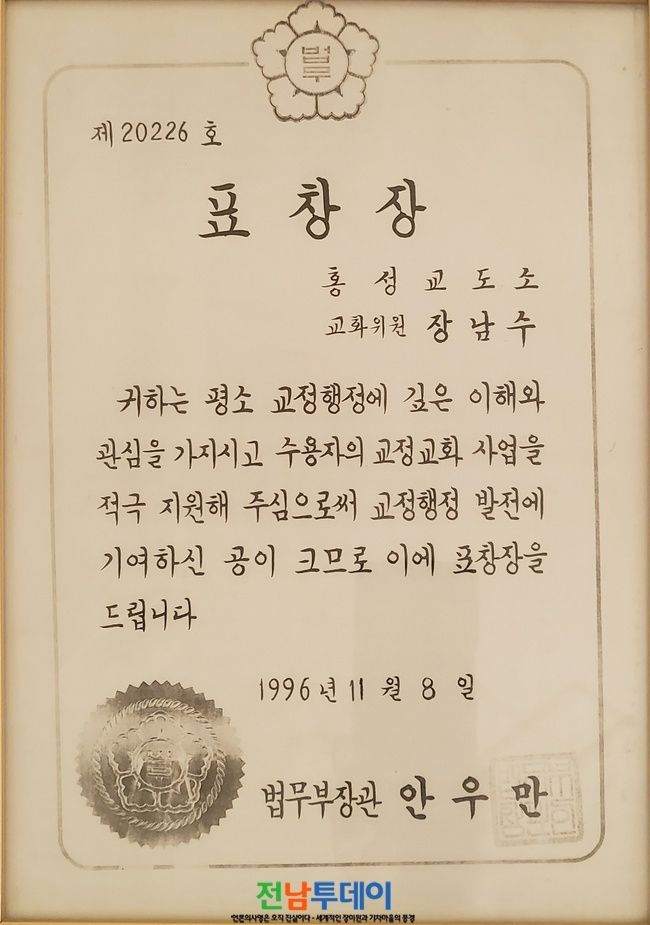 법무
제 20226 호
표 창 장
홍 성 교 도 소
교화위원 장 남 수
귀하는 평소 교정행정에 깊은 이해와
관심을 가지시고 수용자의 교정교화 사업을
적극 지원해 주심으로써 교정행정 발전에
기여하신 공이 크므로 이에 표창장을
드립니다
1996년 11 월 8 일
법무부장관 안 우 만
전남투데이
언론의사명은 오직 진실이다 - 세계적인 장미원과 기차마을의 풍경